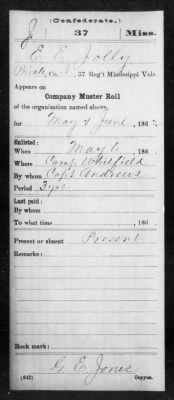 (Confederate.)
J 37 Miss.
E E Jolly
Private, Co. , 37 Reg't Mississippi Vols.
Appears on
Company Muster Roll
of the organization named above,
for May & June, 186
Enlisted:
When May 6, 186
Where Camp Whitfield
By whom Capt Andrews
Period 3 yrs
Last paid:
By whom
To what time , 186
Present or absent Present
Remarks:
Book mark:
G. E. Jones
(642) Copyist.